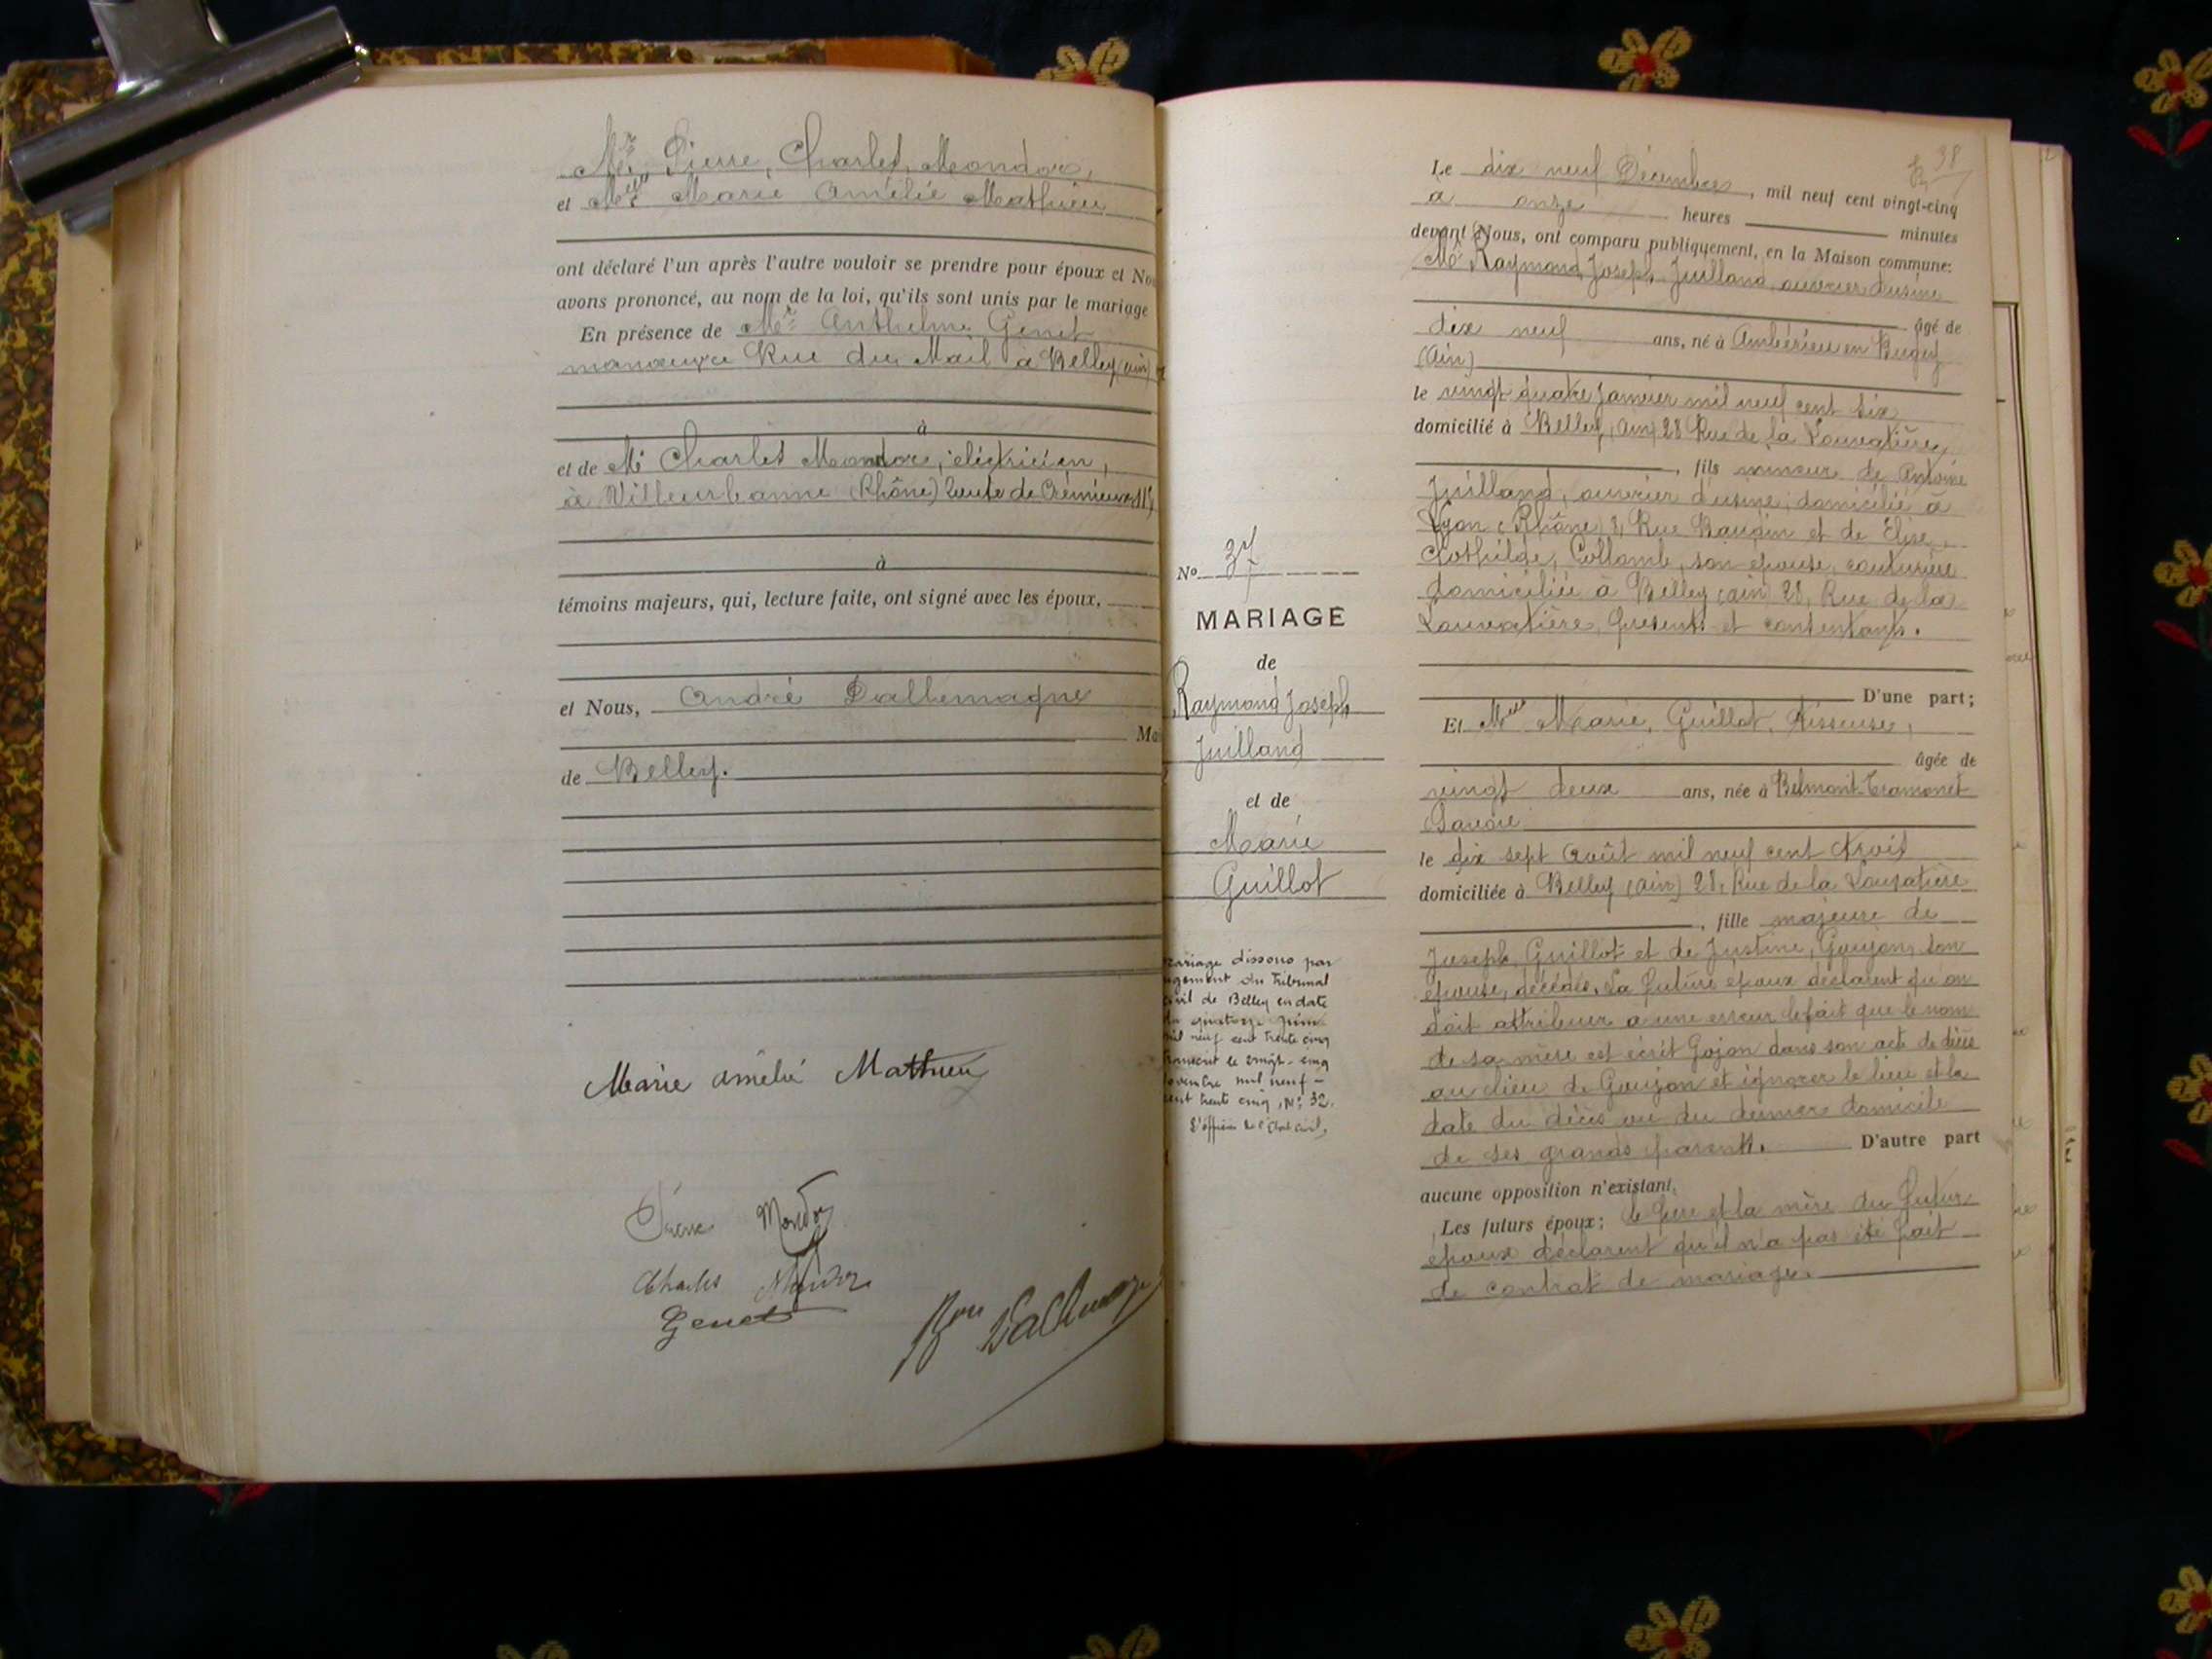 Mr Pierre, Charles, Mondor,
et Melle Marie Amélie Mathieu
ont déclaré l'un après l'autre vouloir se prendre pour époux et No
avons prononcé, au nom de la loi, qu'ils sont unis par le mariage
En présence de Mr Anthelme Genet
manœuvre Rue du Mail à Belley (Ain)
à
et de Mr Charles Mondor, électricien,
à Villeurbanne (Rhône) route de Crémieux
à
témoins majeurs, qui, lecture faite, ont signé avec les époux,
et Nous, André Dallemagne
Ma
de Belley.
Marie Amélie Mathieu
Pierre Mondor
Charles Mondor
Genet
38
Le dix neuf Décembre, mil neuf cent vingt-cinq
à onze heures minutes
devant Nous, ont comparu publiquement, en la Maison commune:
Mr Raymond, Joseph, Juilland, ouvrier d'usine
âgé de
dix neuf ans, né à Ambérieu en Bugey
(Ain)
le vingt quatre Janvier mil neuf cent six
domicilié à Belley (Ain) 28 Rue de la Louvatière,
, fils mineur de Antoine
Juilland, ouvrier d'usine, domicilié à
Lyon (Rhône) 8, Rue Baudin et de Elise,
Clothilde, Collomb, son épouse, couturière
domiciliée à Belley (Ain) 28, Rue de la
Louvatière, présents et consentants.
D'une part;
Et Melle Marie, Guillot, Tisseuse,
âgée de
vingt deux ans, née à Belmont-Tramonet
Savoie
le dix sept Août mil neuf cent trois
domiciliée à Belley (Ain) 28, Rue de la Louvatière
, fille majeure de
Joseph, Guillot et de Justine, Goujon, son
épouse, décédés. La future époux déclarent qu'on
doit attribuer a une erreur le fait que le nom
de sa mère est écrit Gojon dans son acte de décès
au lieu de Goujon et ignorer le lieu et la
date du décès ou du dernier domicile
de ses grands parents. D'autre part
aucune opposition n'existant.
Les futurs époux; le père et la mère du futur
époux déclarent qu'il n'a pas été fait
de contrat de mariage.
No 37
MARIAGE
de
Raymond Joseph
Juilland
et de
Marie
Guillot
ariage dissous par
gement du Tribunal
ivil de Belley en date
du quatorze Juin
mil neuf cent trente cinq
transcrit le vingt-cinq
novembre mil neuf-
cent trente cinq, No 32.
L'officier de l'état civil,